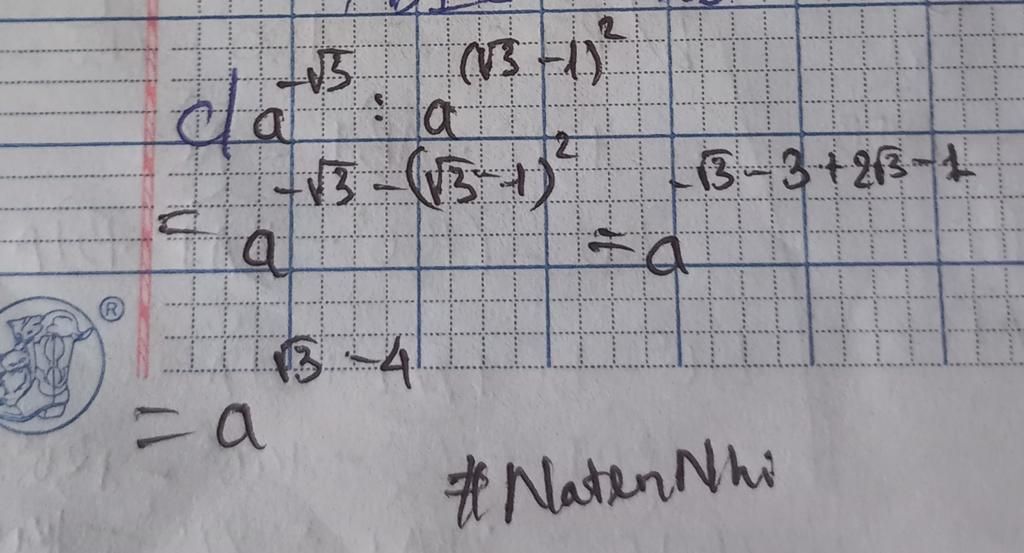 d/ a^{-√3} : a^{(√3 - 1)^2}
= a^{-√3 - (√3 - 1)^2} = a^{-√3 - 3 + 2√3 - 1}
®
= a^{√3 - 4}
#NatenNhi